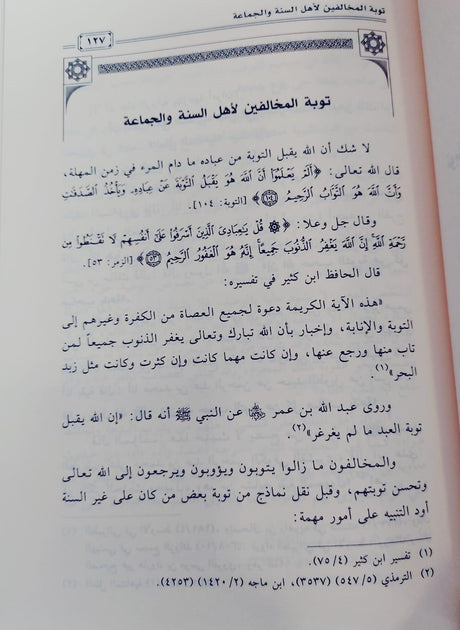 توبة المخالفين لأهل السنة والجماعة
١٢٧
توبة المخالفين لأهل السنة والجماعة
لا شك أن الله يقبل التوبة من عباده ما دام المرء في زمن المهلة،
قال الله تعالى: ﴿أَلَمْ يَعْلَمُوٓا۟ أَنَّ ٱللَّهَ هُوَ يَقْبَلُ ٱلتَّوْبَةَ عَنْ عِبَادِهِۦ وَيَأْخُذُ ٱلصَّدَقَٰتِ
وَأَنَّ ٱللَّهَ هُوَ ٱلتَّوَّابُ ٱلرَّحِيمُ ﴿١٠٤﴾﴾ [التوبة: ١٠٤].
وقال جل وعلا: ﴿۞ قُلْ يَٰعِبَادِىَ ٱلَّذِينَ أَسْرَفُوا۟ عَلَىٰٓ أَنفُسِهِمْ لَا تَقْنَطُوا۟ مِن
رَّحْمَةِ ٱللَّهِ إِنَّ ٱللَّهَ يَغْفِرُ ٱلذُّنُوبَ جَمِيعًا إِنَّهُۥ هُوَ ٱلْغَفُورُ ٱلرَّحِيمُ ﴿٥٣﴾﴾ [الزمر: ٥٣].
قال الحافظ ابن كثير في تفسيره:
«هذه الآية الكريمة دعوة لجميع العصاة من الكفرة وغيرهم إلى
التوبة والإنابة، وإخبار بأن الله تبارك وتعالى يغفر الذنوب جميعاً لمن
تاب منها ورجع عنها، وإن كانت مهما كانت وإن كثرت وكانت مثل زبد
البحر»(١).
وروى عبد الله بن عمر ﵁ عن النبي ﷺ أنه قال: «إن الله يقبل
توبة العبد ما لم يغرغر»(٢).
والمخالفون ما زالوا يتوبون ويؤوبون ويرجعون إلى الله تعالى
وتحسن توبتهم، وقبل نقل نماذج من توبة بعض من كان على غير السنة
أود التنبيه على أمور مهمة:
(١) تفسير ابن كثير (٤/ ٧٥).
(٢) الترمذي (٥/ ٥٤٧) (٣٥٣٧)، ابن ماجه (٢/ ١٤٢٠) (٤٢٥٣).